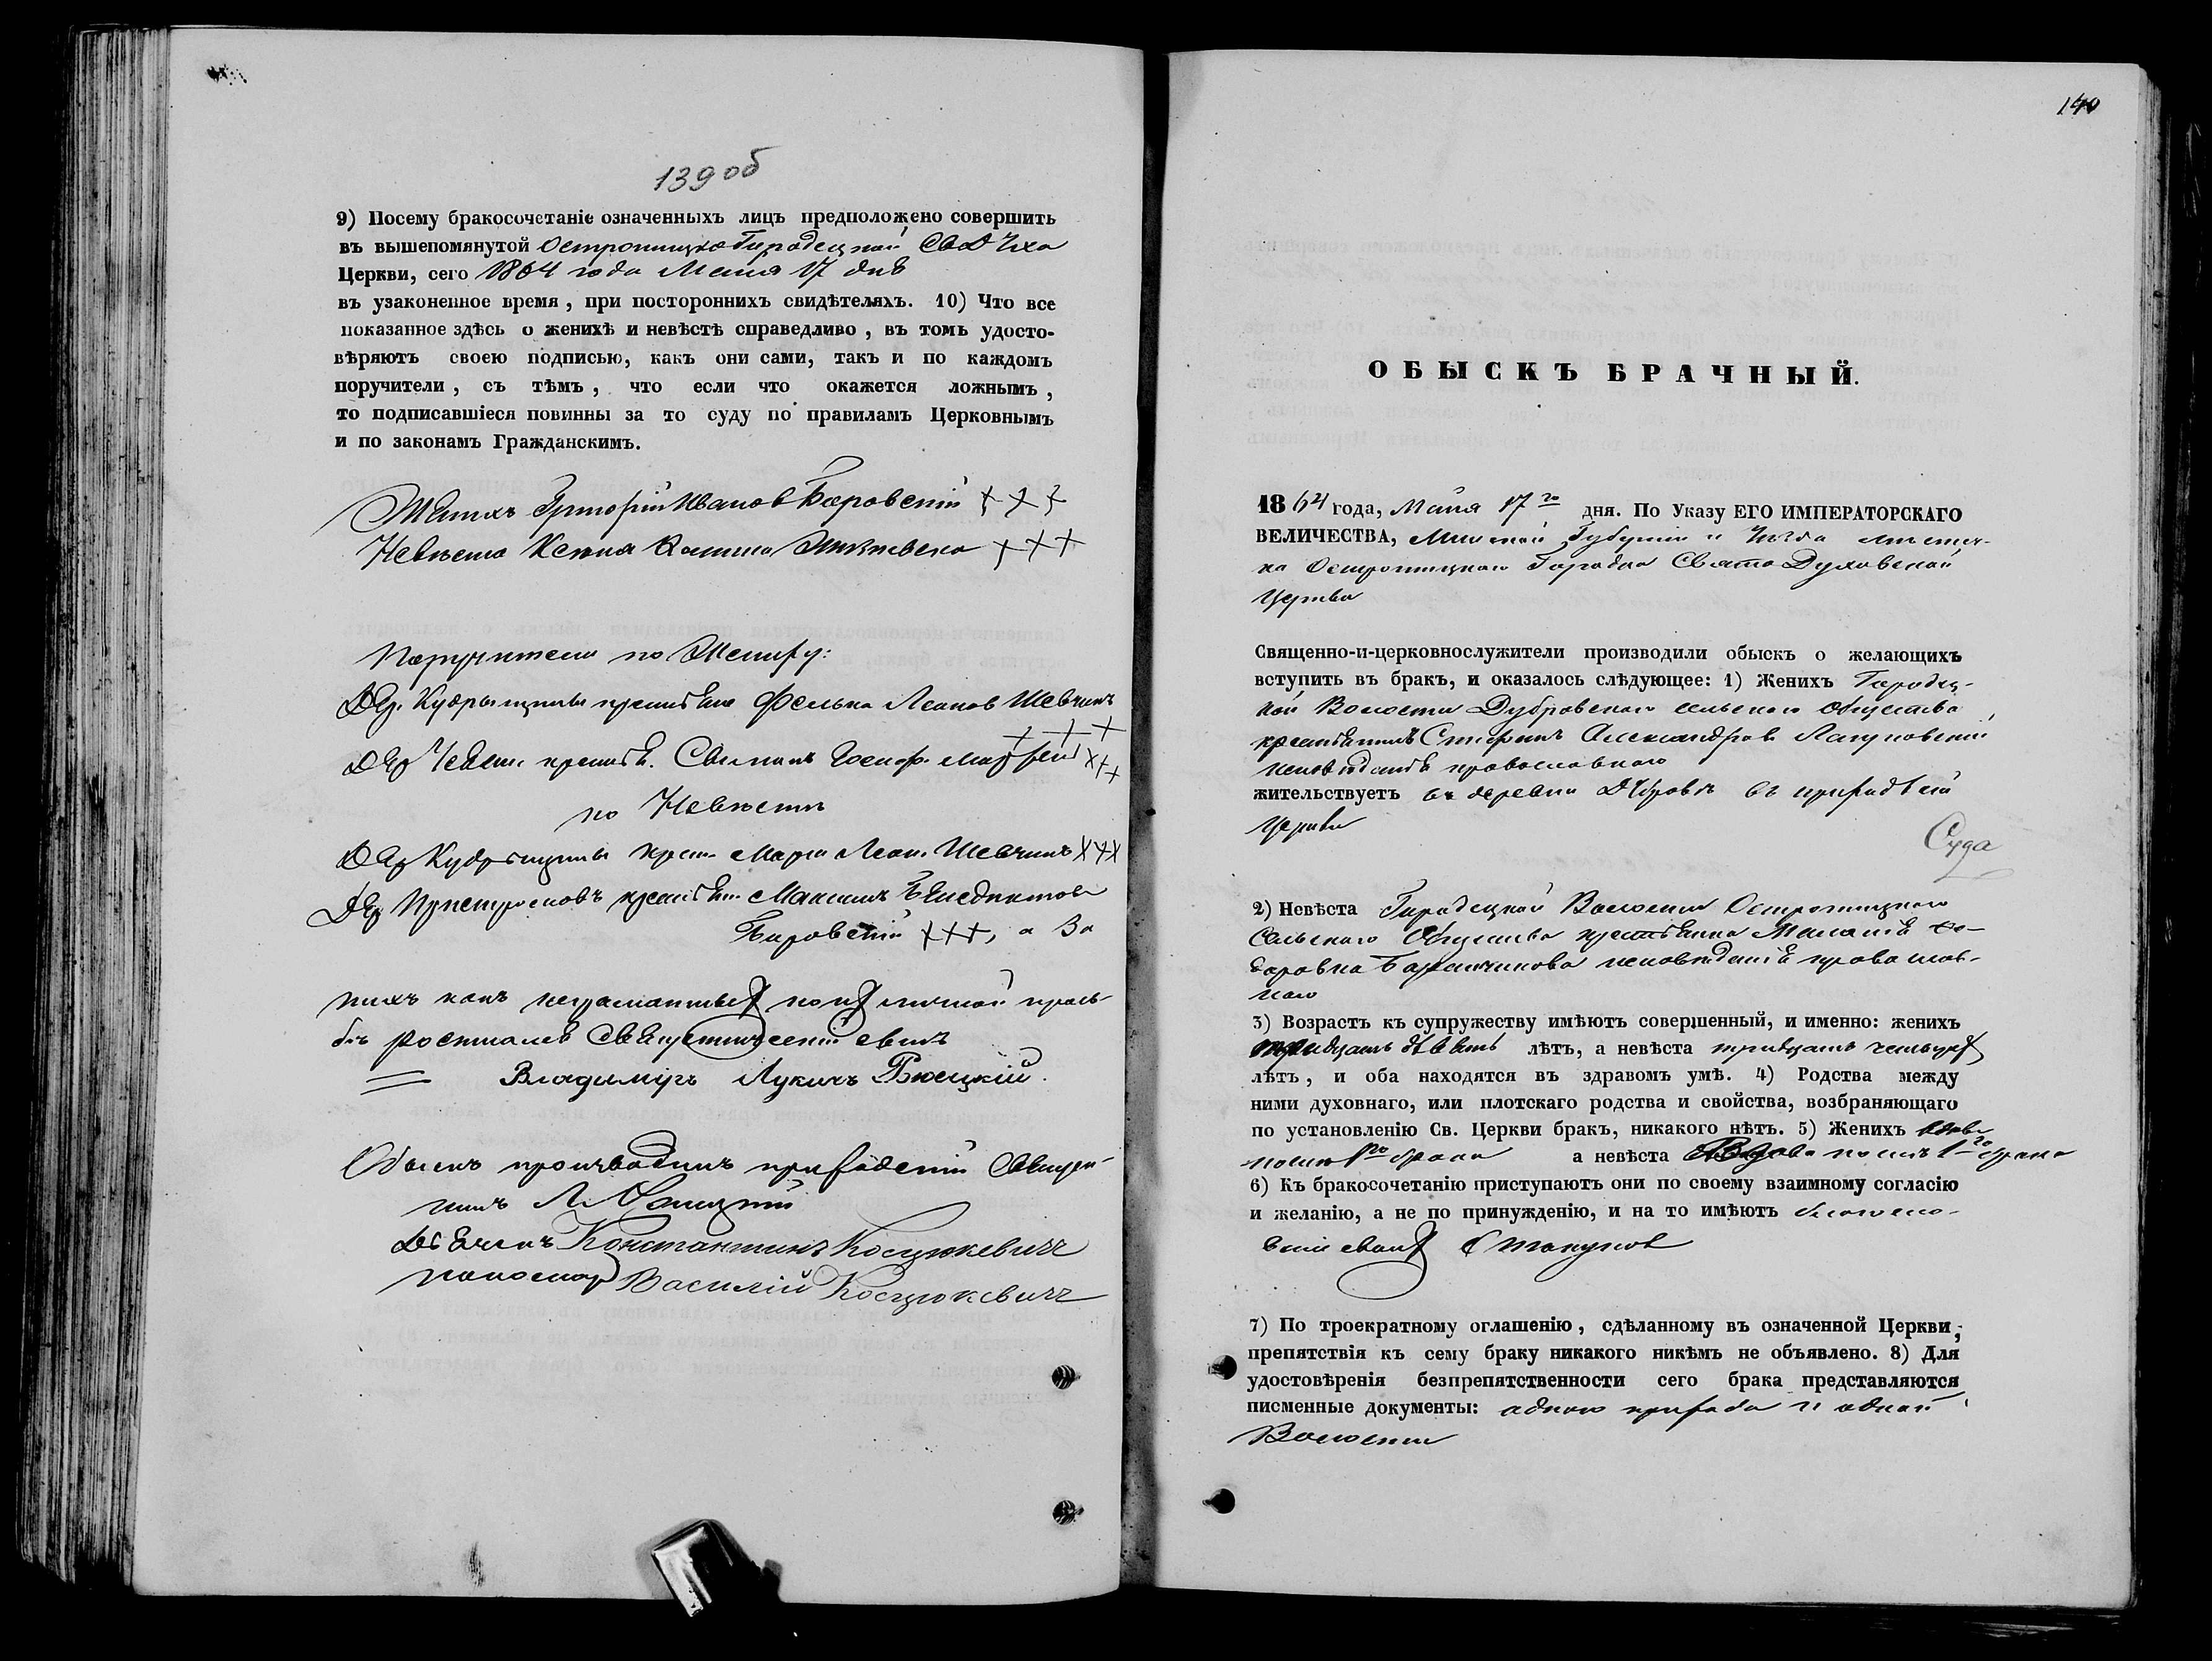 139 об
9) Посему бракосочетаніе означенныхъ лицъ предположено совершить
въ вышепомянутой Острошицко Городецкой Св Д Уха
Церкви, сего 1864 года Маия 17 дня
въ узаконенное время, при постороннихъ свидѣтеляхъ. 10) Что все
показанное здѣсь о женихѣ и невѣстѣ справедливо, въ томъ удосто-
вѣряютъ своею подписью, какъ они сами, такъ и по каждомъ
поручители, съ тѣмъ, что если что окажется ложнымъ,
то подписавшіеся повинны за то суду по правиламъ Церковнымъ
и по законамъ Гражданскимъ.
Женихъ Григорій Иванов Боровский +++
Невѣста Ксения +++
Поручители по Жениху:
Дер. Кудрыщины Леонов Шевчикъ
+ + +
Дер крест. Осиф. +++
по Невѣсте
Дер Кудрыщины крест. Марко Леон. Шевчикъ ХХХ
Дер Максим Бенедиктов
Боровский +++, а за
них как неграмотных по их личной прось-
бѣ росписался
Владимиръ Лукичъ
Обыскъ производилъ приходский Священ-
никъ
Дьячекъ Константинъ Косцюкевичъ
пономарь Василій Косцюкевичъ
140
ОБЫСКЪ БРАЧНЫЙ.
1864 года, Маия 17го дня. По Указу ЕГО ИМПЕРАТОРСКАГО
ВЕЛИЧЕСТВА, Минской Губернии и Уѣзда мѣстеч-
ка Острошицкаго Городка Свято Духовской
Церкви
Священно-и-церковнослужители производили обыскъ о желающихъ
вступить въ бракъ, и оказалось слѣдующее: 1) Женихъ Городец-
кой Волости Дубровскаго сельскаго общества
крестьянинъ Стефанъ Александров
исповѣдания православнаго
жительствуетъ въ деревни Дубровѣ въ приходѣ сей
Церкви
Суда
2) Невѣста Городецкой Волости Острошицкаго
Сельскаго Общества крестьянка Малания Фе-
доровна исповѣдания православ-
наго
3) Возрастъ къ супружеству имѣютъ совершенный, и именно: женихъ
тридцать девять лѣтъ, а невѣста тридцать четырех
лѣтъ, и оба находятся въ здравомъ умѣ. 4) Родства между
ними духовнаго, или плотскаго родства и свойства, возбраняющаго
по установленію Св. Церкви бракъ, никакого нѣтъ. 5) Женихъ вдовъ
послѣ 1го брака а невѣста Вдова послѣ 1го брака
6) Къ бракосочетанію приступаютъ они по своему взаимному согласію
и желанію, а не по принужденію, и на то имѣютъ благосло-
вение своих
7) По троекратному оглашенію, сдѣланному въ означенной Церкви,
препятствія къ сему браку никакого никѣмъ не объявлено. 8) Для
удостовѣренія безпрепятственности сего брака представляются
писменные документы: одного прихода и одной
Волости